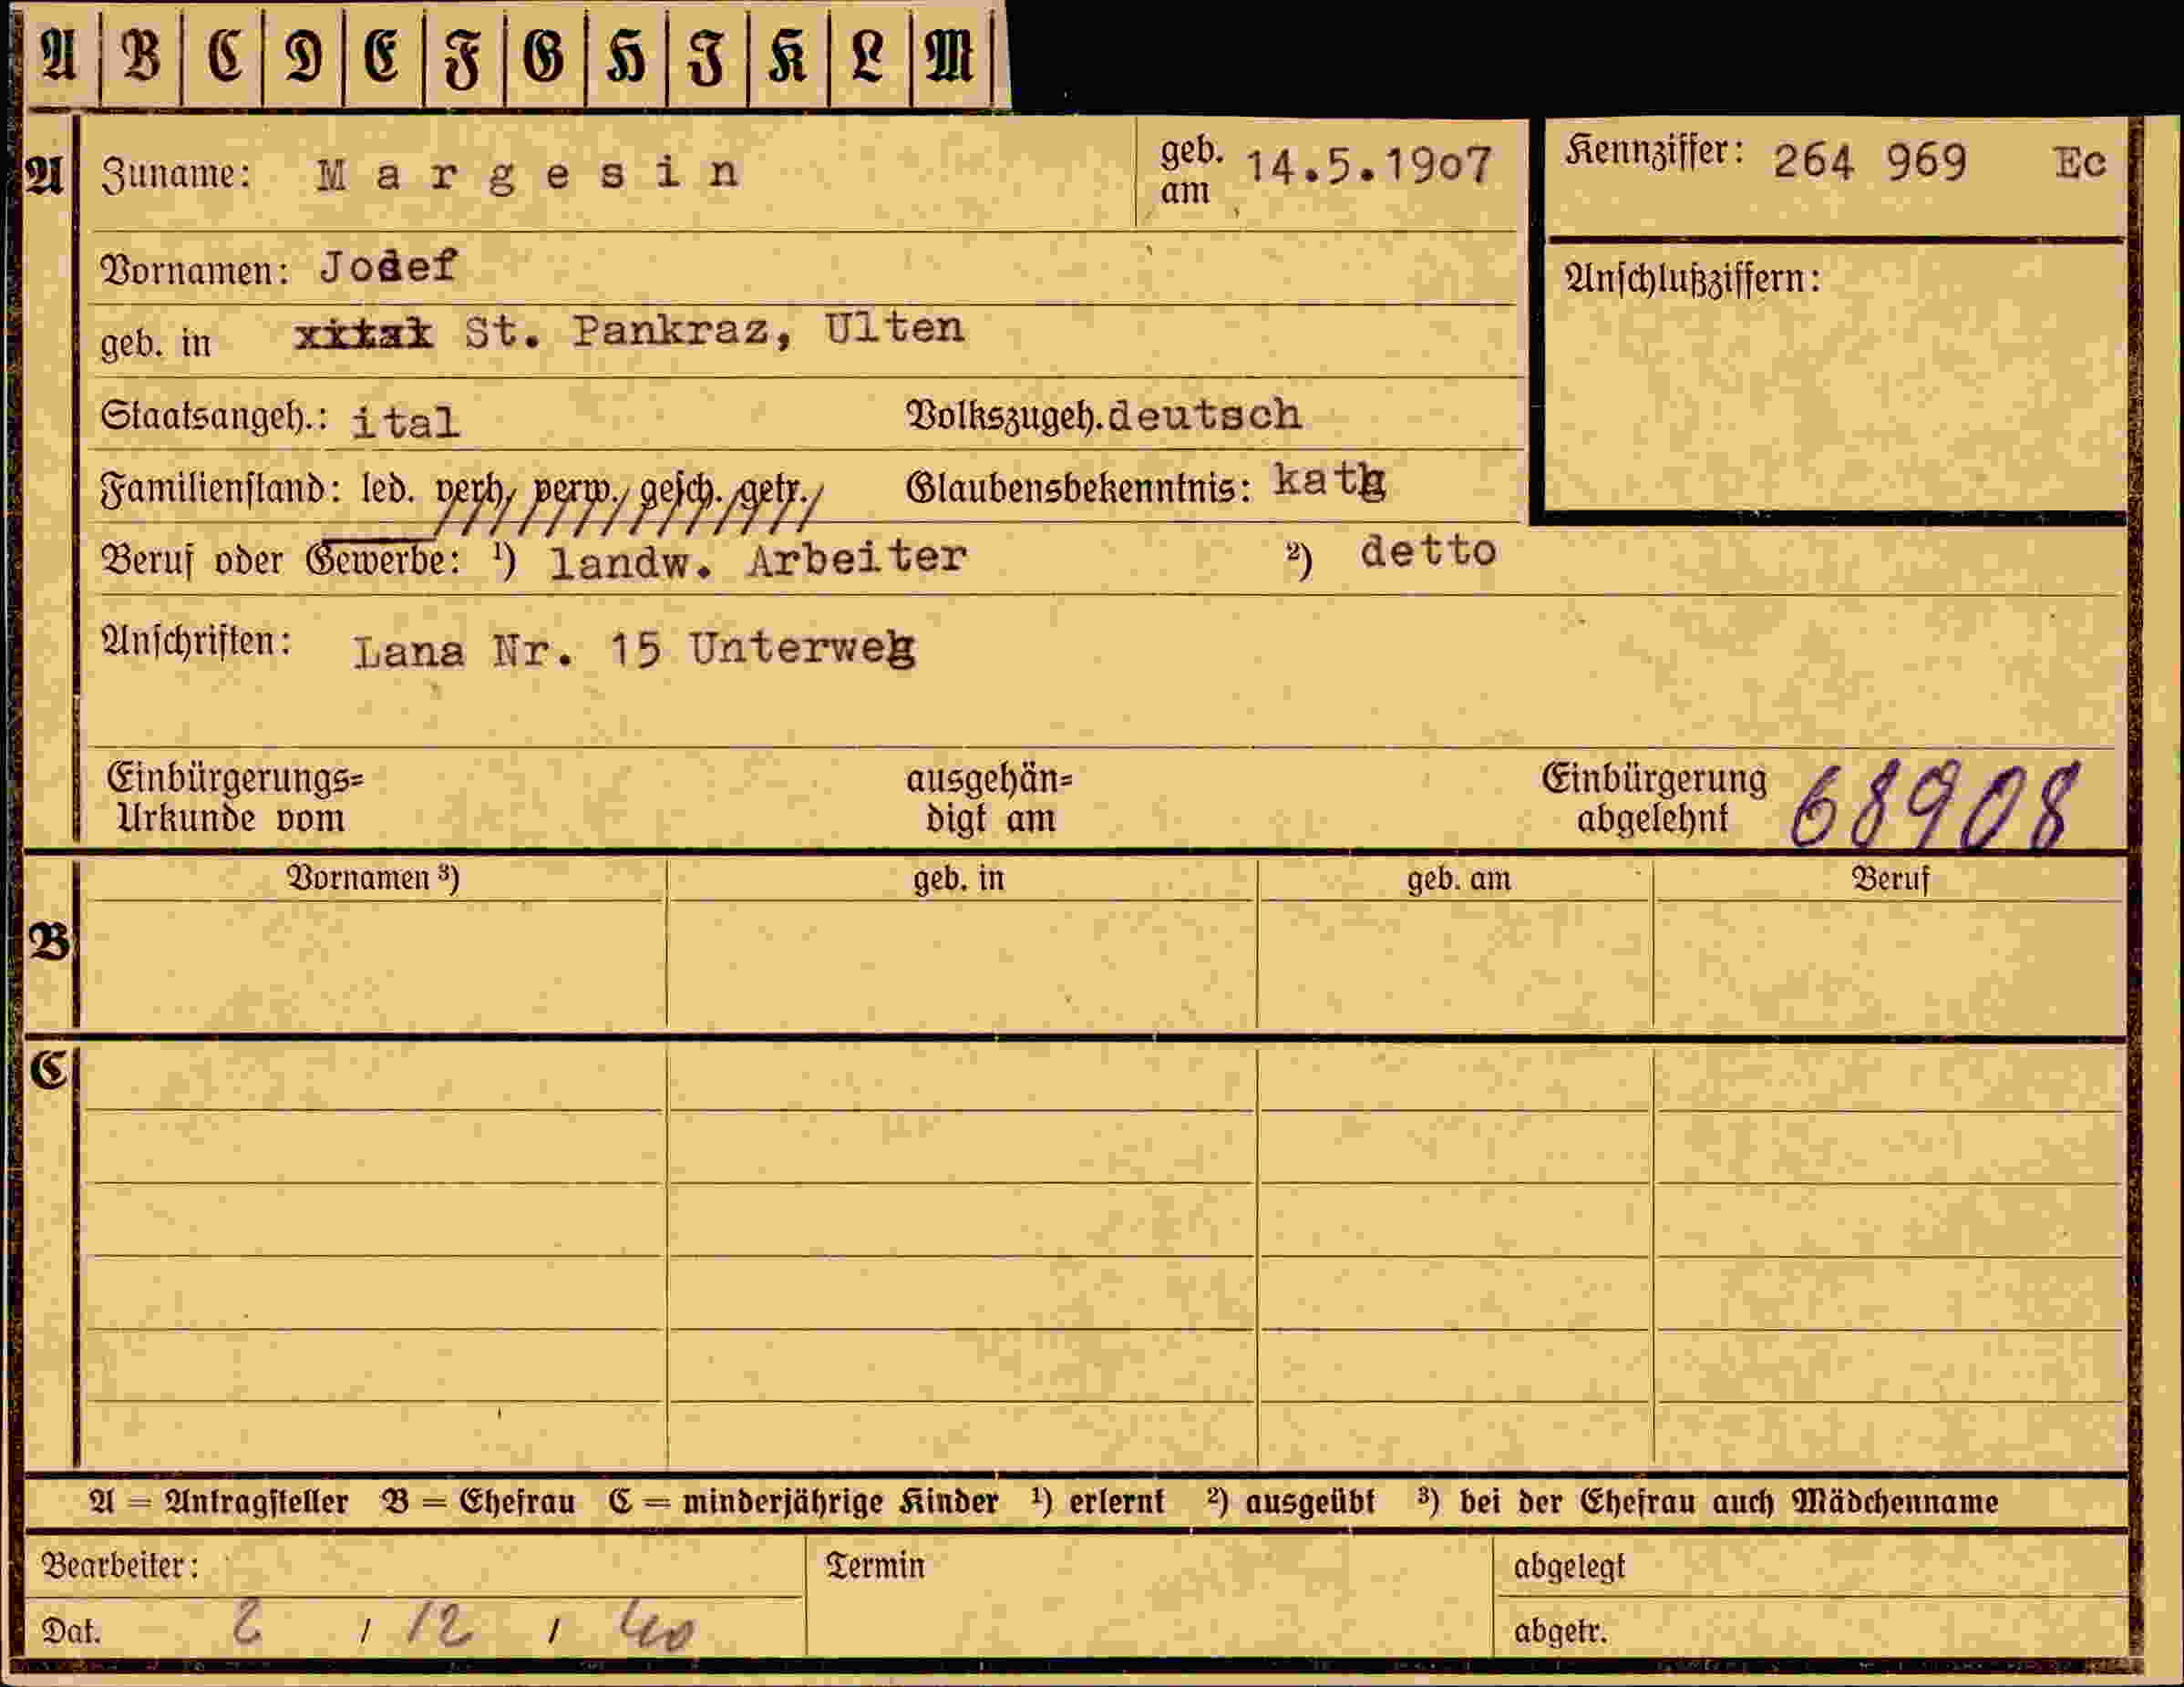 A B C D E F G H I K L M
A Zuname: Margesin geb. am 14.5.1907 Kennziffer: 264 969 Ec
Vornamen: Josef Anschlußziffern:
geb. in St. Pankraz, Ulten
Staatsangeh.: ital Volkszugeh. deutsch
Familienstand: led. verh. verw. gesch. getr. Glaubensbekenntnis: kath
Beruf oder Gewerbe: ¹) landw. Arbeiter ²) detto
Anschriften: Lana Nr. 15 Unterweg
Einbürgerungs= ausgehän= Einbürgerung 68908
Urkunde vom digt am abgelehnt
Vornamen ³) geb. in geb. am Beruf
B
C
A = Antragsteller B = Ehefrau C = minderjährige Kinder ¹) erlernt ²) ausgeübt ³) bei der Ehefrau auch Mädchenname
Bearbeiter: Termin abgelegt
Dat. 2 / 12 / 40 abgetr.